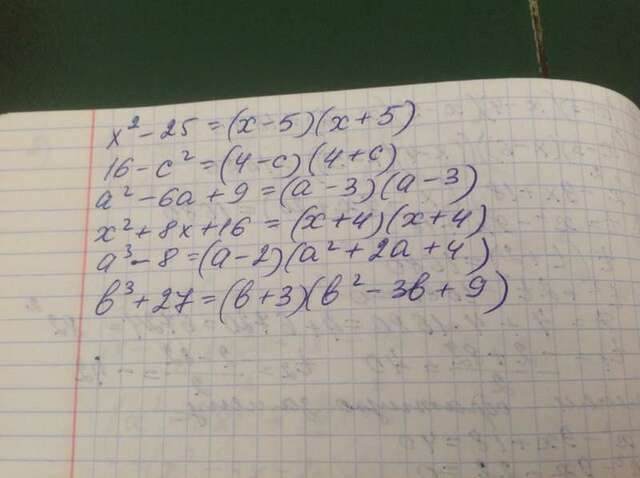 x² - 25 = (x - 5)(x + 5)
16 - c² = (4 - c)(4 + c)
a² - 6a + 9 = (a - 3)(a - 3)
x² + 8x + 16 = (x + 4)(x + 4)
a³ - 8 = (a - 2)(a² + 2a + 4)
в³ + 27 = (в + 3)(в² - 3в + 9)